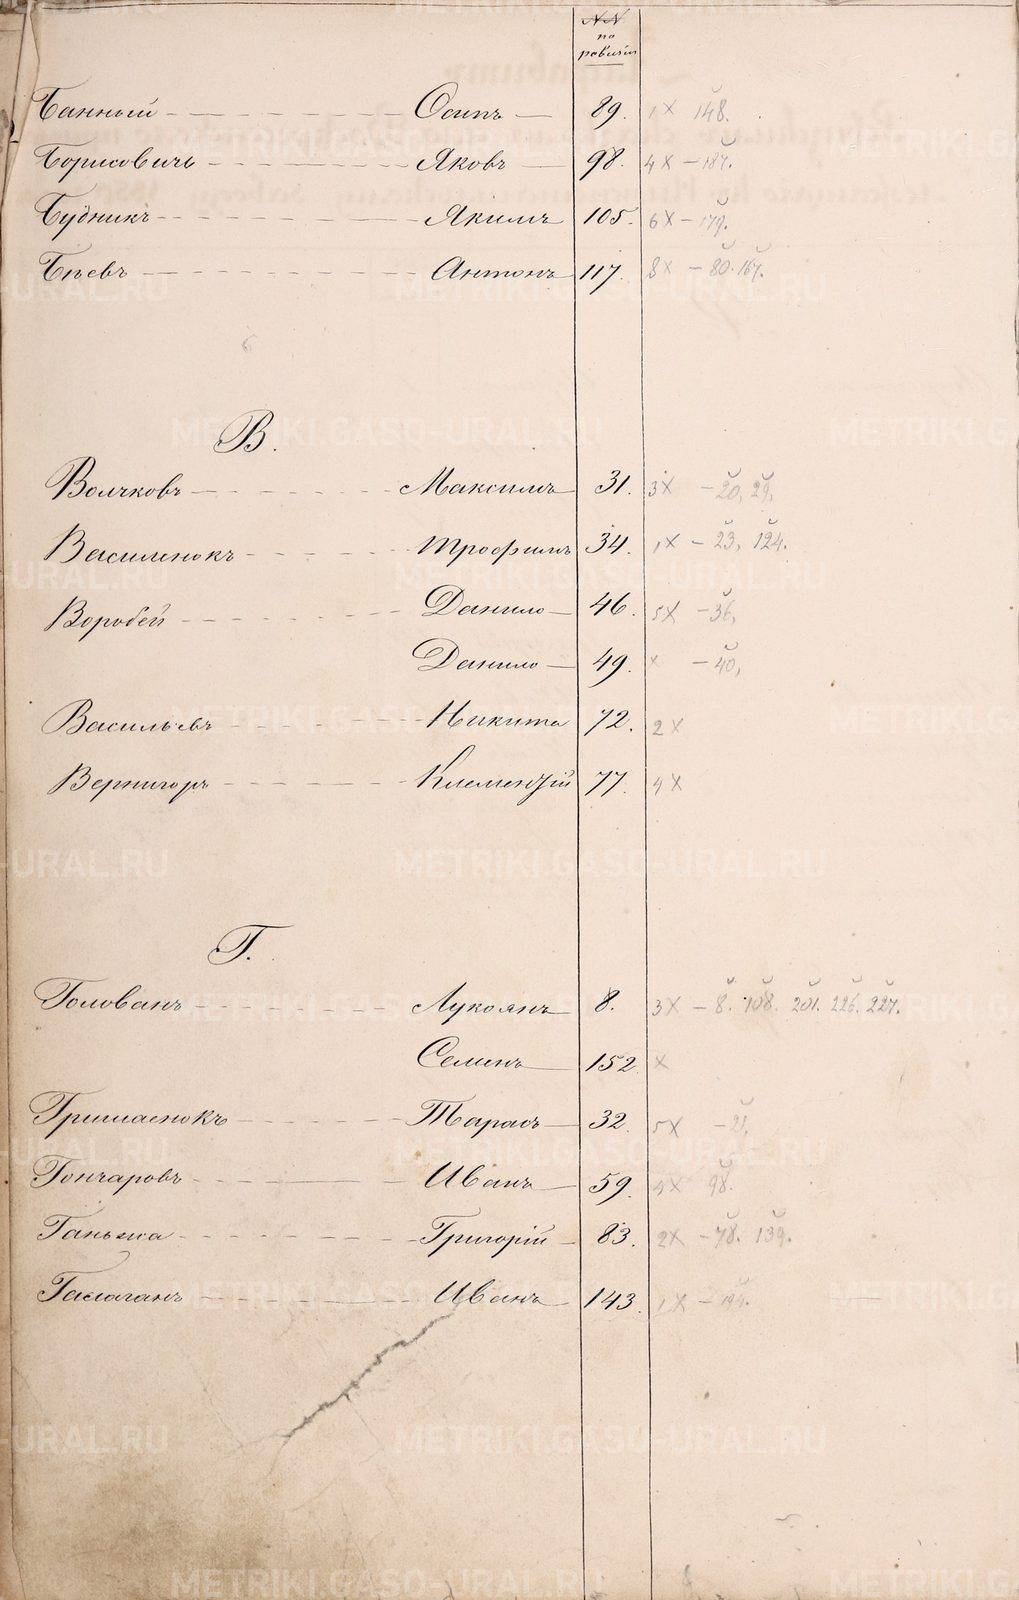 NN
по
ревизіи
Банный Осипъ 89. 1 X 148.
Борисовичъ Яковъ 98. 4 X - 187.
Будникъ Якимъ 105. 6 X - 179.
Бѣевъ Антонъ 117. 8 X - 80. 167.
В.
Волчковъ Максимъ 31. 3 X - 20, 29,
Василенокъ Трофимъ 34. 1 X - 23, 124.
Воробей Данило 46. 5 X - 36,
Данило 49. X - 40,
Васильевъ Никита 72. 2 X
Вернигоръ Клементій 77. 4 X
Г.
Голованъ Лукоянъ 8. 3 X - 8. 108. 201. 226. 227.
Семенъ 152. X
Гришаенокъ Тарасъ 32. 5 X - 21,
Гончаровъ Иванъ 59. 4 X 98.
Ганьжа Григорій 83. 2 X - 78. 139.
Галаганъ Иванъ 143. 1 X
METRIKI.GASO-URAL.RU